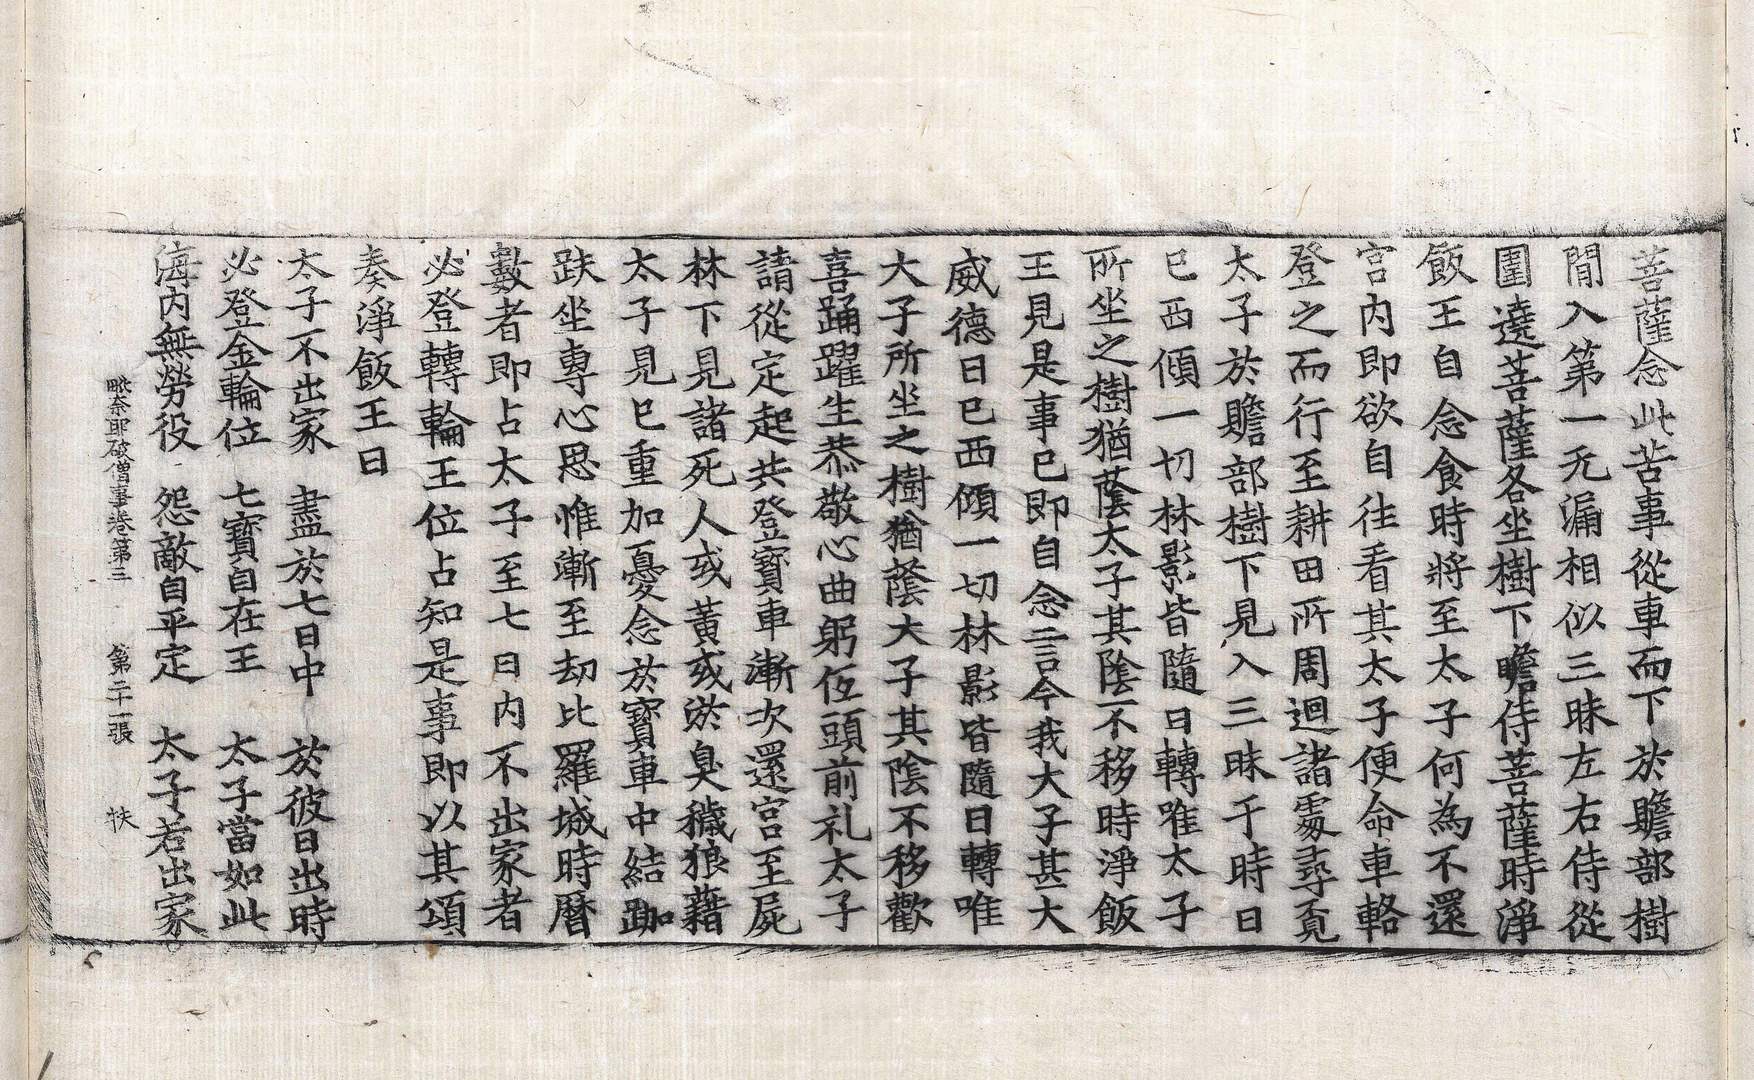 菩薩念此苦事從車而下於贍部樹
閒入第一无漏相似三昧左右侍從
圍遶菩薩各坐樹下瞻侍菩薩時淨
飯王自念食時將至太子何為不還
宮内即欲自往看其太子便命車輅
登之而行至耕田所周迴諸處尋覓
太子於贍部樹下見入三昧于時日
已西傾一切林影皆隨日轉唯太子
所坐之樹猶蔭太子其陰不移時淨飯
王見是事已即自念言今我大子甚大
威德日已西傾一切林影皆隨日轉唯
大子所坐之樹猶蔭大子其陰不移歡
喜踊躍生恭敬心曲躬低頭前礼太子
請從定起共登寶車漸次還宮至屍
林下見諸死人或黃或淤臭穢狼藉
太子見已重加憂念於寶車中結跏
趺坐專心思惟漸至劫比羅城時曆
數者即占太子至七日内不出家者
必登轉輪王位占知是事即以其頌
奏淨飯王曰
太子不出家　盡於七日中　於彼日出時
必登金輪位　七寶自在王　太子當如此
海内無勞役　怨敵自平定　太子若出家
毗奈耶破僧事卷第三　第二十一張　扶